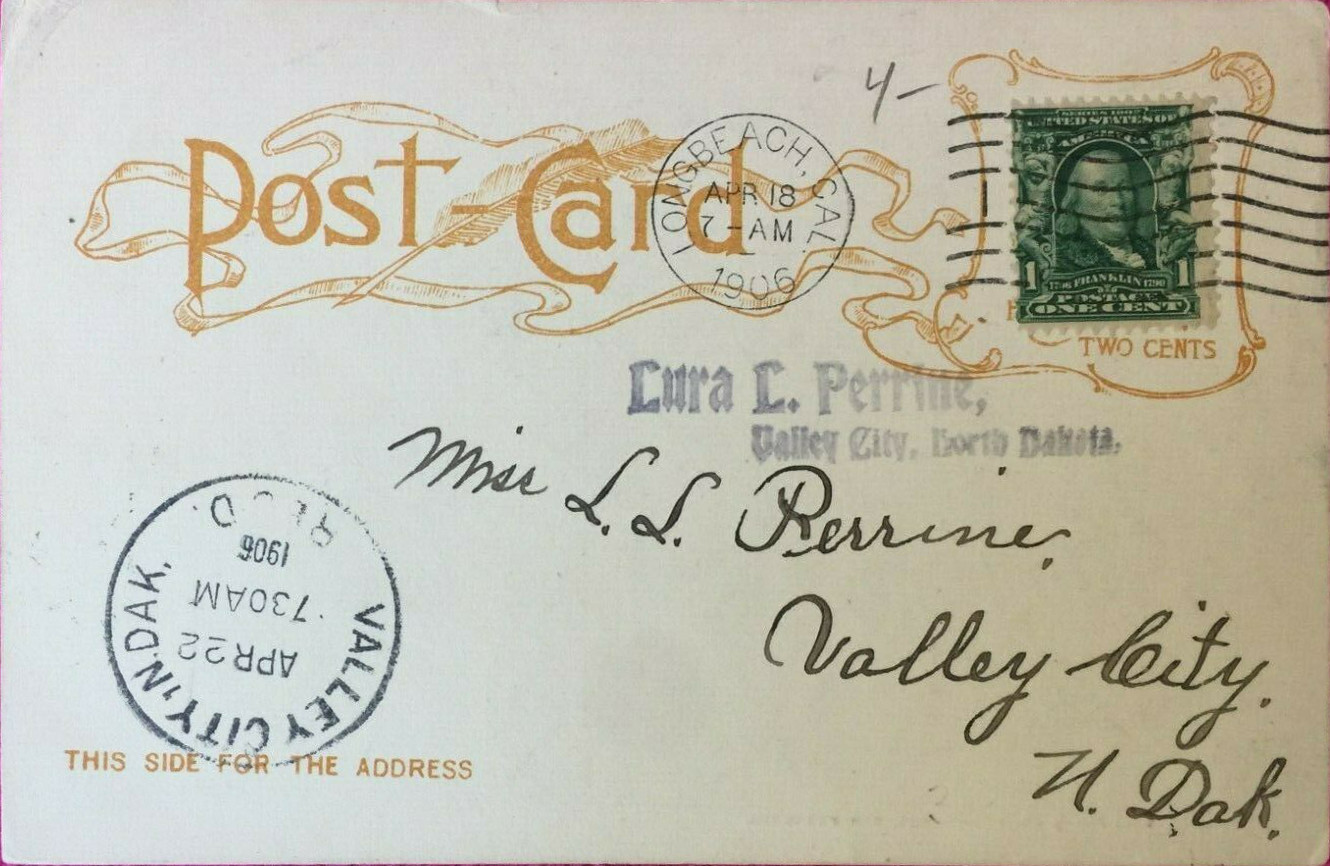 4-
Post-Card
LONG BEACH, CAL.
APR 18
7-AM
1906
SERIES 1902
UNITED STATES OF
AMERICA
1 1706 FRANKLIN 1790 1
POSTAGE
ONE CENT
TWO CENTS
Lura L. Perrine,
Valley City, North Dakota.
Miss L. L. Perrine.
Valley City.
N. Dak.
VALLEY CITY, N. DAK.
APR 22
730AM
1906
REC'D.
THIS SIDE FOR THE ADDRESS